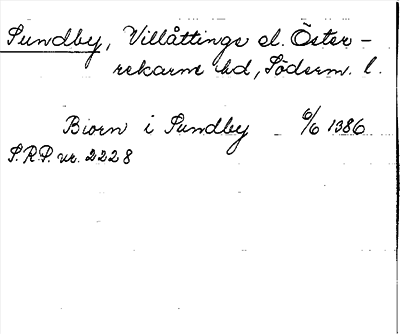 Sundby, Villåttings el. Öster-
rekarne hd, Söderm. l.
Biorn i Sundby 6/6 1386
S.R.P. nr. 2228